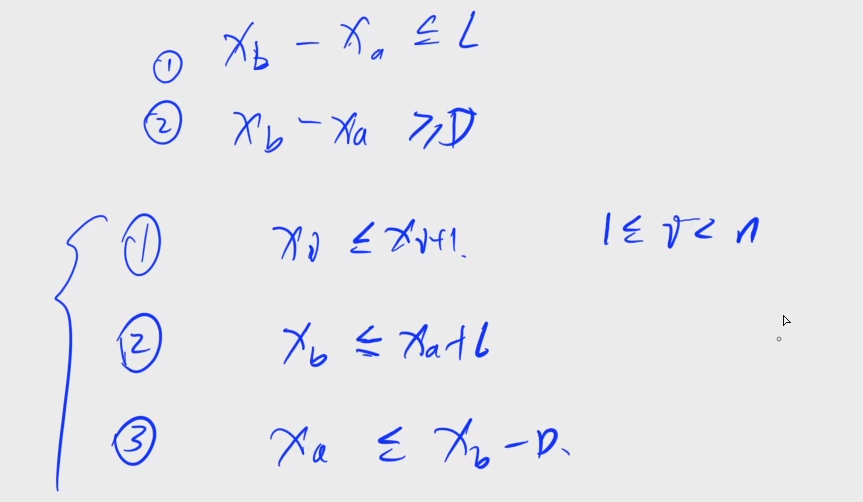 ① x_b - x_a ≤ L
② x_b - x_a ≥ D
① x_i ≤ x_{i+1}. 1 ≤ i < n
② x_b ≤ x_a + L
③ x_a ≤ x_b - D.